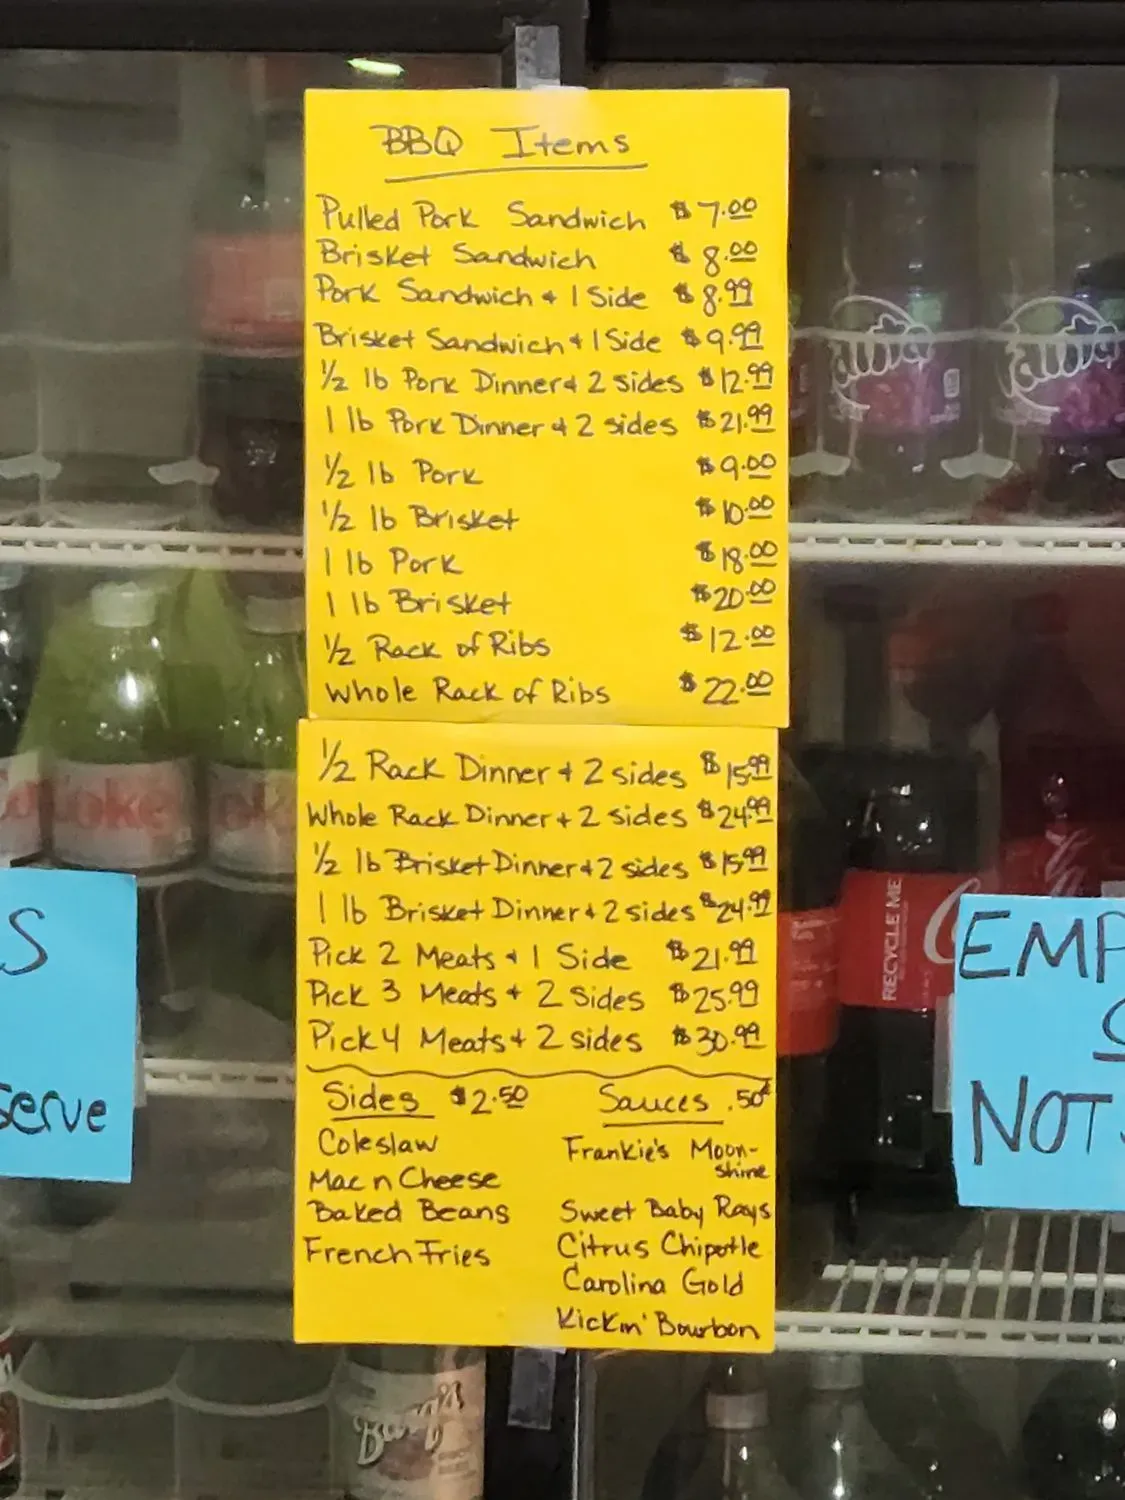 BBQ Items
Pulled Pork Sandwich $7.00
Brisket Sandwich $8.00
Pork Sandwich + 1 Side $8.99
Brisket Sandwich + 1 Side $9.99
1/2 lb Pork Dinner + 2 sides $12.99
1 lb Pork Dinner + 2 sides $21.99
1/2 lb Pork $9.00
1/2 lb Brisket $10.00
1 lb Pork $18.00
1 lb Brisket $20.00
1/2 Rack of Ribs $12.00
Whole Rack of Ribs $22.00
1/2 Rack Dinner + 2 sides $15.99
Whole Rack Dinner + 2 sides $24.99
1/2 lb Brisket Dinner + 2 sides $15.99
1 lb Brisket Dinner + 2 sides $24.99
Pick 2 Meats + 1 Side $21.99
Pick 3 Meats + 2 Sides $25.99
Pick 4 Meats + 2 sides $30.99
Sides $2.50
Coleslaw
Mac n Cheese
Baked Beans
French Fries
Sauces .50¢
Frankie's Moon-
shine
Sweet Baby Rays
Citrus Chipotle
Carolina Gold
Kickin' Bourbon
S
serve
EMP
S
NOT
RECYCLE ME
oke
oke
Fanta
Fanta
Barq's